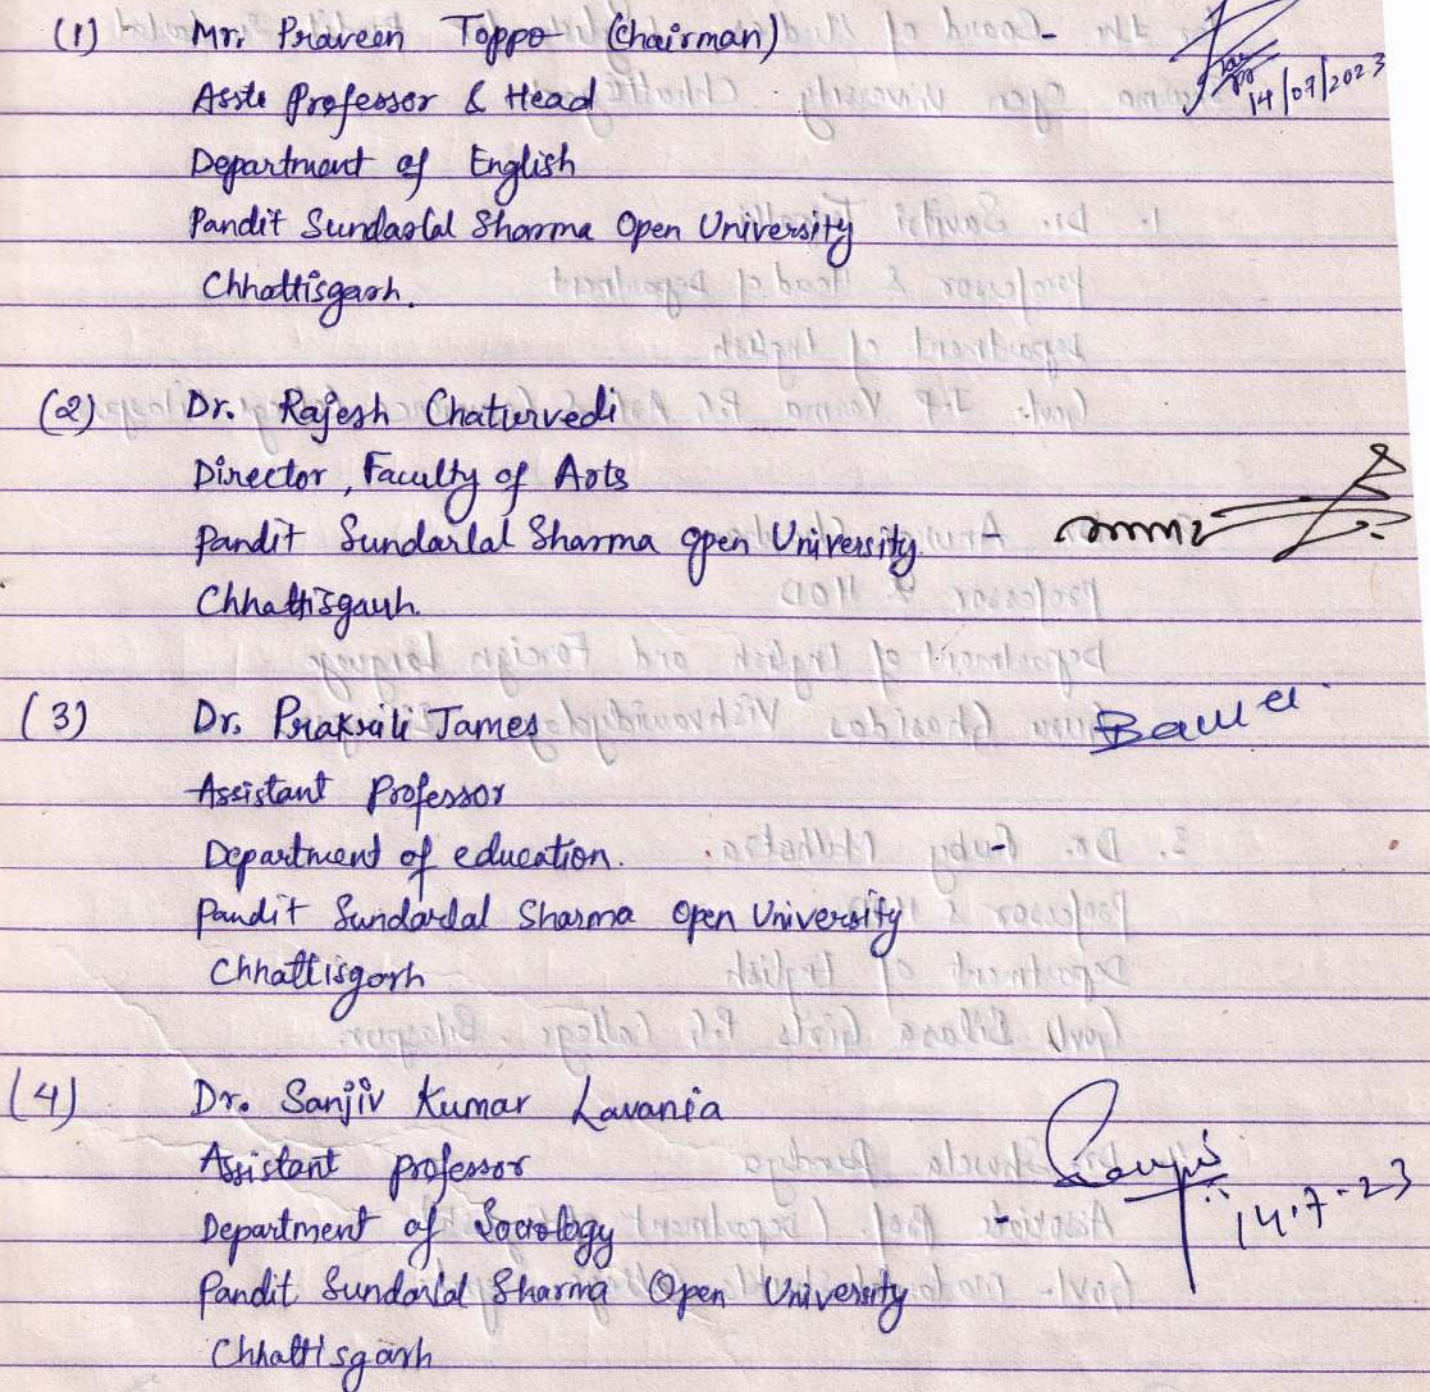 (1) Mr. Praveen Toppo (Chairman) -
14/07/2023
Asstt Professor & Head
Department of English
Pandit Sundarlal Sharma Open University
Chhattisgarh.
(2) Dr. Rajesh Chaturvedi
Director, Faculty of Arts
Pandit Sundarlal Sharma Open University -
Chhattisgarh.
(3) Dr. Prakriti James
Assistant Professor
Department of education. -
Pandit Sundarlal Sharma Open University
Chhattisgarh
(4) Dr. Sanjiv Kumar Lavania
Assistant professor
Department of Sociology -
14.7.23
Pandit Sundarlal Sharma Open University
Chhattisgarh